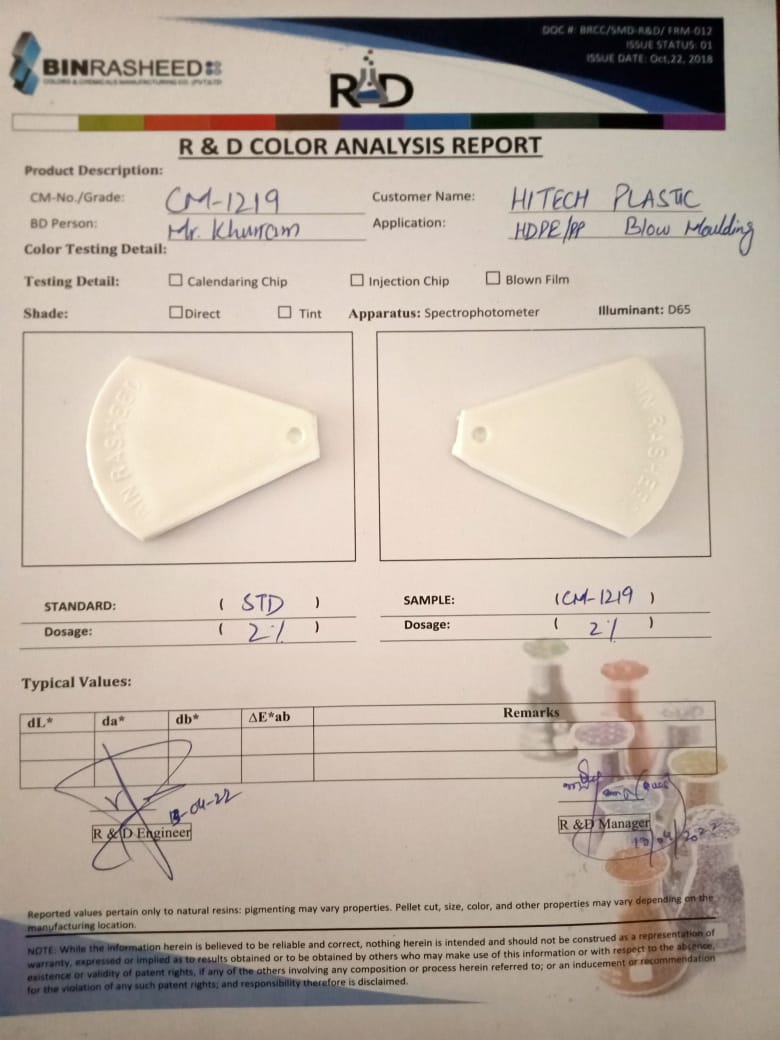 DOC #: BRCC/SMD-R&D/ FRM-012
ISSUE STATUS: 01
ISSUE DATE: Oct,22, 2018
BINRASHEED
COLORS & CHEMICALS MANUFACTURING CO. (PVT)LTD
R&D
R & D COLOR ANALYSIS REPORT
Product Description:
CM-No./Grade: CM-1219 Customer Name: HITECH PLASTIC
BD Person: Mr. Khurram Application: HDPE/PP Blow Moulding
Color Testing Detail:
Testing Detail: ☐ Calendaring Chip ☐ Injection Chip ☐ Blown Film
Shade: ☐ Direct ☐ Tint Apparatus: Spectrophotometer Illuminant: D65
BIN RASHEED BIN RASHEED
STANDARD: ( STD ) SAMPLE: (CM-1219 )
Dosage: ( 2% ) Dosage: ( 2% )
Typical Values:
dL* da* db* ΔE*ab Remarks
-04-22
R & D Engineer R &D Manager
Reported values pertain only to natural resins: pigmenting may vary properties. Pellet cut, size, color, and other properties may vary depending on the
manufacturing location.
NOTE: While the information herein is believed to be reliable and correct, nothing herein is intended and should not be construed as a representation of
warranty, expressed or implied as to results obtained or to be obtained by others who may make use of this information or with respect to the absence,
existence or validity of patent rights, if any of the others involving any composition or process herein referred to; or an inducement or recommendation
for the violation of any such patent rights; and responsibility therefore is disclaimed.